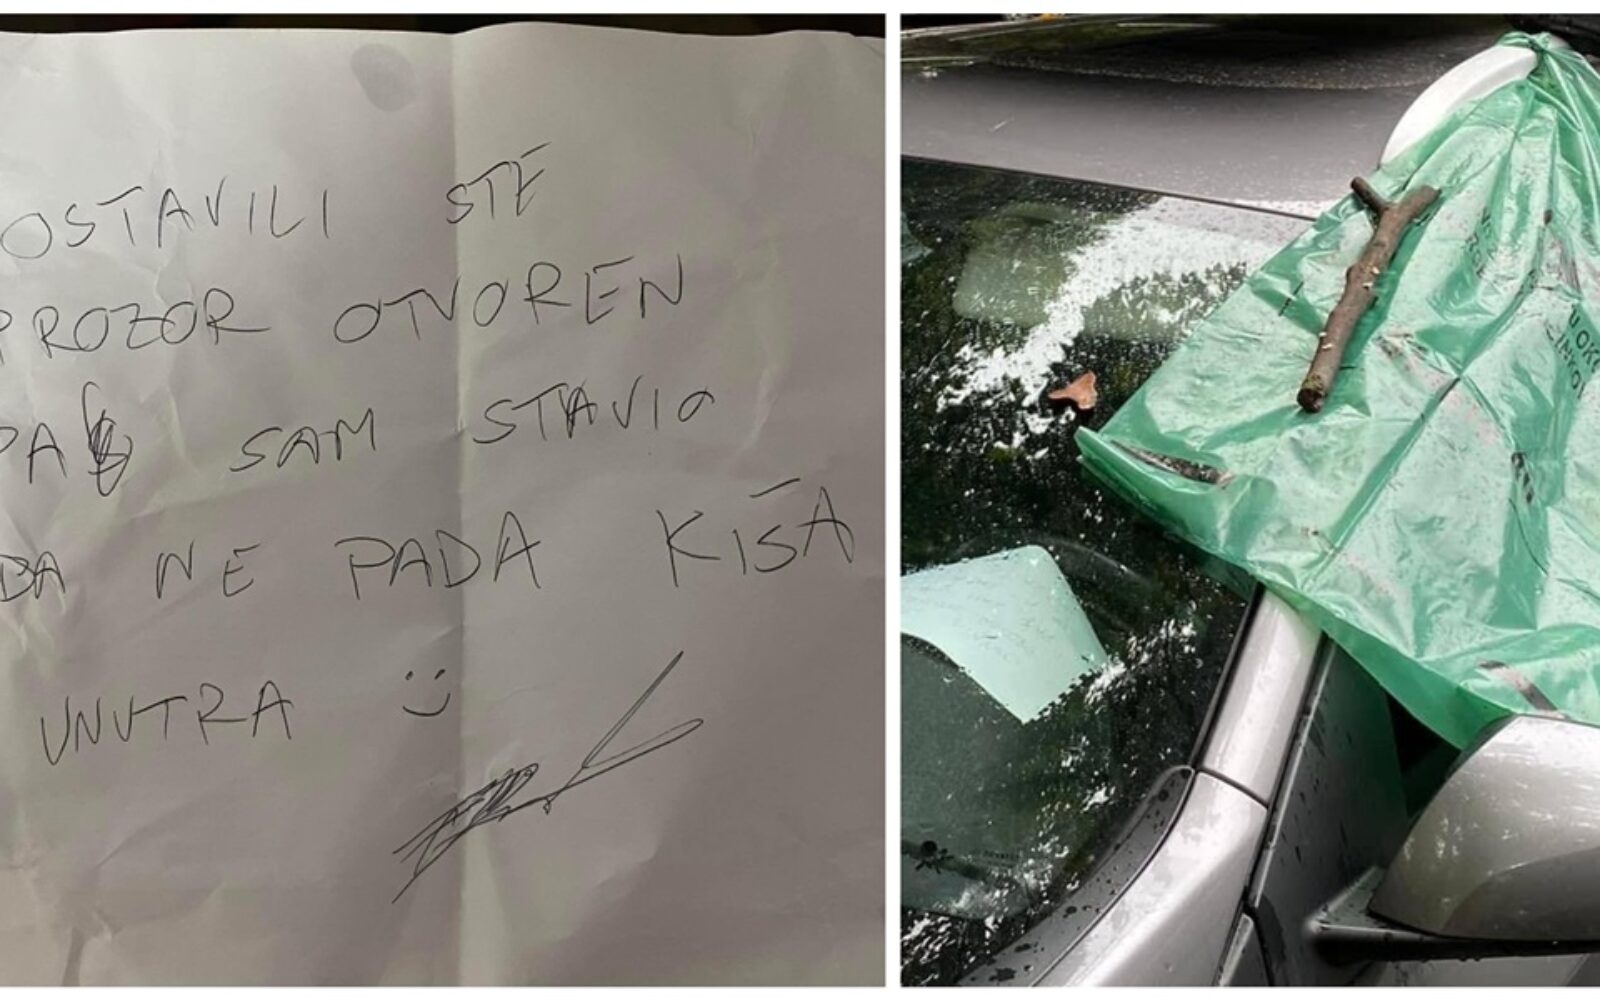 OSTAVILI STE
PROZOR OTVOREN
PA SAM STAVIO
DA NE PADA KIŠA
UNUTRA :)
U OK